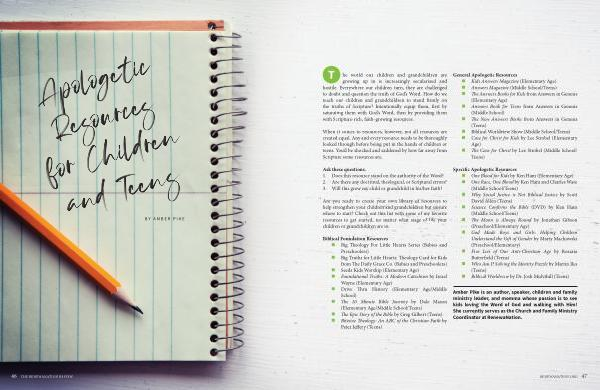 Apologetic
Resources
for Children
and Teens
BY AMBER PIKE
46 THE RENEWANATION REVIEW
The world our children and grandchildren are
growing up in is increasingly secularized and
hostile. Everywhere our children turn, they are challenged
to doubt and question the truth of God's Word. How do we
teach our children and grandchildren to stand firmly on
the truths of Scripture? Intentionally equip them, first by
saturating them with God's Word, then by providing them
with Scripture-rich, faith-growing resources.
When it comes to resources, however, not all resources are
created equal. Any and every resource needs to be thoroughly
looked through before being put in the hands of children or
teens. You'd be shocked and saddened by how far away from
Scripture some resources are.
Ask these questions:
1. Does this resource stand on the authority of the Word?
2. Are there any doctrinal, theological, or Scriptural errors?
3. Will this grow my child or grandchild in his/her faith?
Are you ready to create your own library of resources to
help strengthen your children and grandchildren but aren't
where to start? Check out this list with some of my favorite
resources to get started, no matter what stage of life your
children or grandchildren are in.
Biblical Foundation Resources
Big Theology For Little Hearts Series (Babies and
Preschoolers)
Big Truths for Little Hearts: Theology Card for Kids
from The Daily Grace Co. (Babies and Preschoolers)
Seeds Kids Worship (Elementary Age)
Foundational Truths: A Modern Catechism by Israel
Wayne (Elementary Age)
Drive Thru History (Elementary Age/Middle
School)
The 10 Minute Bible Journey by Dale Mason
(Elementary Age/Middle School/Teens)
The Epic Story of the Bible by Greg Gilbert (Teens)
Bitesize Theology: An ABC of the Christian Faith by
Peter Jeffery (Teens)
General Apologetic Resources
Kids Answers Magazine (Elementary Age)
Answers Magazine (Middle School/Teens)
The Answers Books for Kids from Answers in Genesis
(Elementary Age)
Answers Book for Teens from Answers in Genesis
(Middle School)
The New Answers Books from Answers in Genesis
(Teens)
Biblical Worldview Show (Middle School/Teens)
Case for Christ for Kids by Lee Strobel (Elementary
Age)
The Case for Christ by Lee Strobel (Middle School/
Teens)
Specific Apologetic Resources
One Blood for Kids by Ken Ham (Elementary Age)
One Race, One Blood by Ken Ham and Charles Ware
(Middle School/Teens)
Why Social Justice Is Not Biblical Justice by Scott
David Allen (Teens)
Science Confirms the Bible (DVD) by Ken Ham
(Middle School/Teens)
The Moon is Always Round by Jonathan Gibson
(Preschool/Elementary Age)
God Made Boys and Girls: Helping Children
Understand the Gift of Gender by Marty Machowski
(Preschool/Elementary)
Five Lies of Our Anti-Christian Age by Rosaria
Butterfield (Teens)
Who Am I? Solving the Identity Puzzle by Martin Iles
(Teens)
Biblical Worldview by Dr. Josh Mulvihill (Teens)
Amber Pike is an author, speaker, children and family
ministry leader, and momma whose passion is to see
kids loving the Word of God and walking with Him!
She currently serves as the Church and Family Ministry
Coordinator at RenewaNation.
RENEWANATION.ORG 47